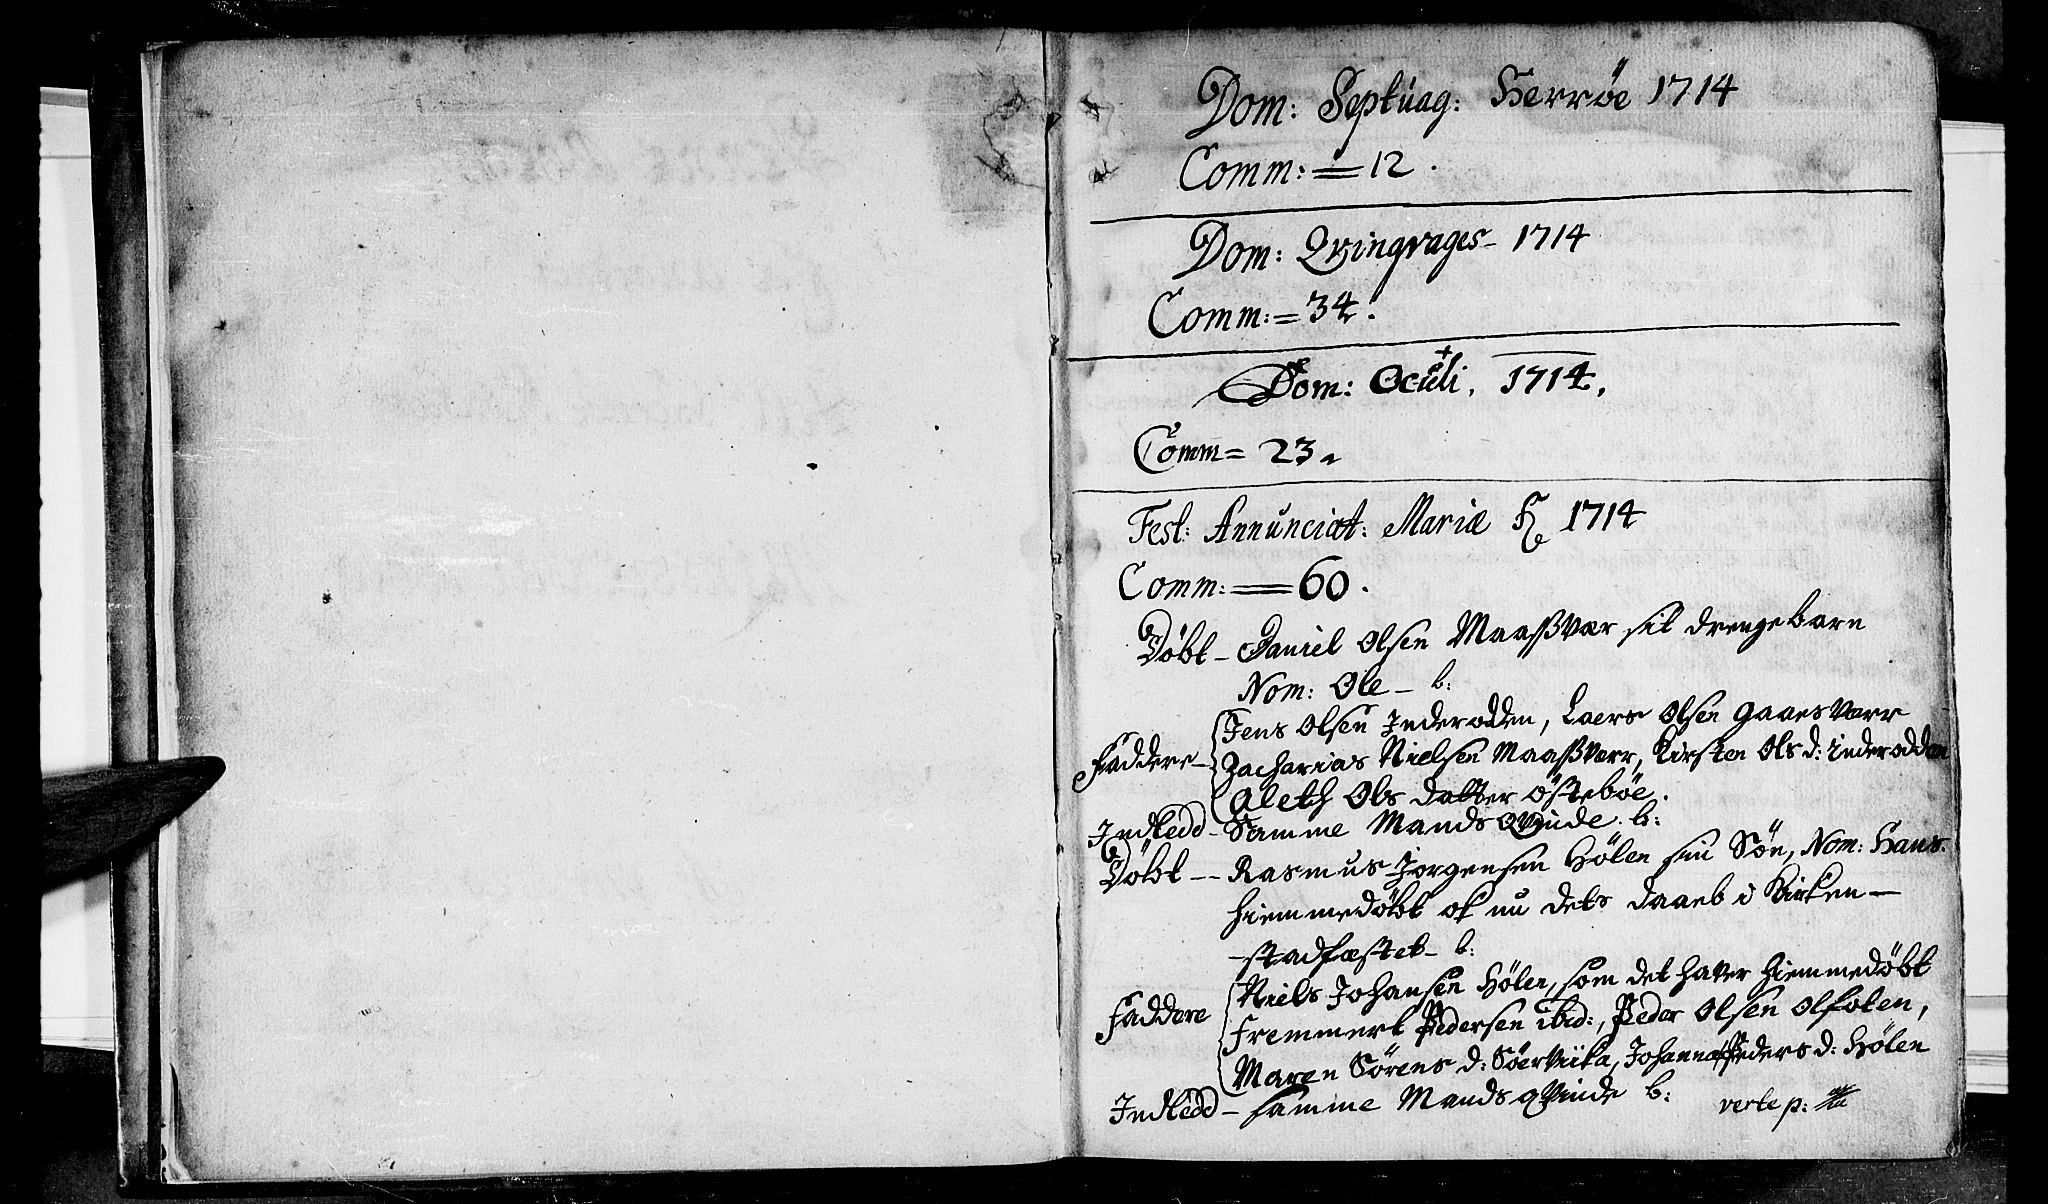 Dom: Septuag: Herrøe 1714
Comm: = 12.
Dom: Qvinqvages- 1714
Comm: = 34.
Dom: Oculi, 1714,
Comm = 23.
Fest: Annunciat: Mariæ 1714
Comm: = 60.
Döbt - Daniel Olsen Maassvær sit drengebarn
Nom: Ole - b:
Jens Olsen Inderodden, Laers Olsen Gaaesværr
Faddere - Zacharias Nielsen Maassværr, Kirsten Ols d: inderodden
Aleth Ols datter östebøe.
Indledd - Samme Mands Qvinde. b:
Döbt -- Rasmus Jörgensen Hölen sin Sön, Nom: Hans.
hiemmedöbt ok nu dets daaeb i Kirken -
stadfæstet - b:
Niels Johansen Hölen, som det haver hiemmedöbt
Faddere Fremmert Pedersen ibid:, Peder Olsen Olfoten,
Maren Sörens d: Söerviika, Johanna Peders d: Hölen
Indledd - samme Mands qvinde b: verte p: